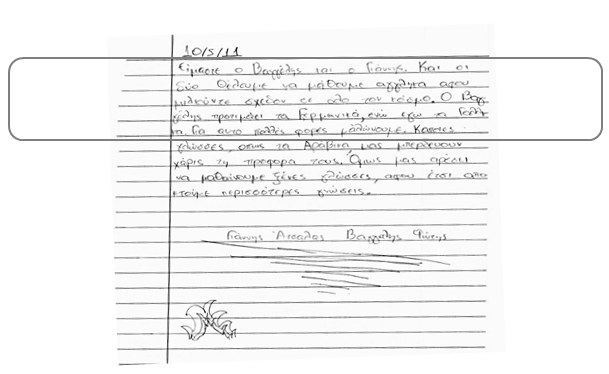 10/5/11
Είμαστε ο Βαγγέλης και ο Γιάννης. Και οι
δύο θέλουμε να μάθουμε αγγλικα αφου
μιλιούντε σχεδόν σε όλο τον κόσμο. Ο Βαγ
γέλης προτιμάει τα Γερμανικά, ενώ εγω τα Γαλλι
κα. Για αυτο πολλές φορές μαλώνουμε. Κάποιες
γλώσσες, οπως τα Αραβικα μας μπερδευουν
χάρις τη προφορα τους. Όμως μας αρέσει
να μαθαίνουμε ξένες γλώσσες, αφου έτσι απο
κτούμε περισσότερες γνώσεις.
Γιάννης Βαγγέλης Φώτης